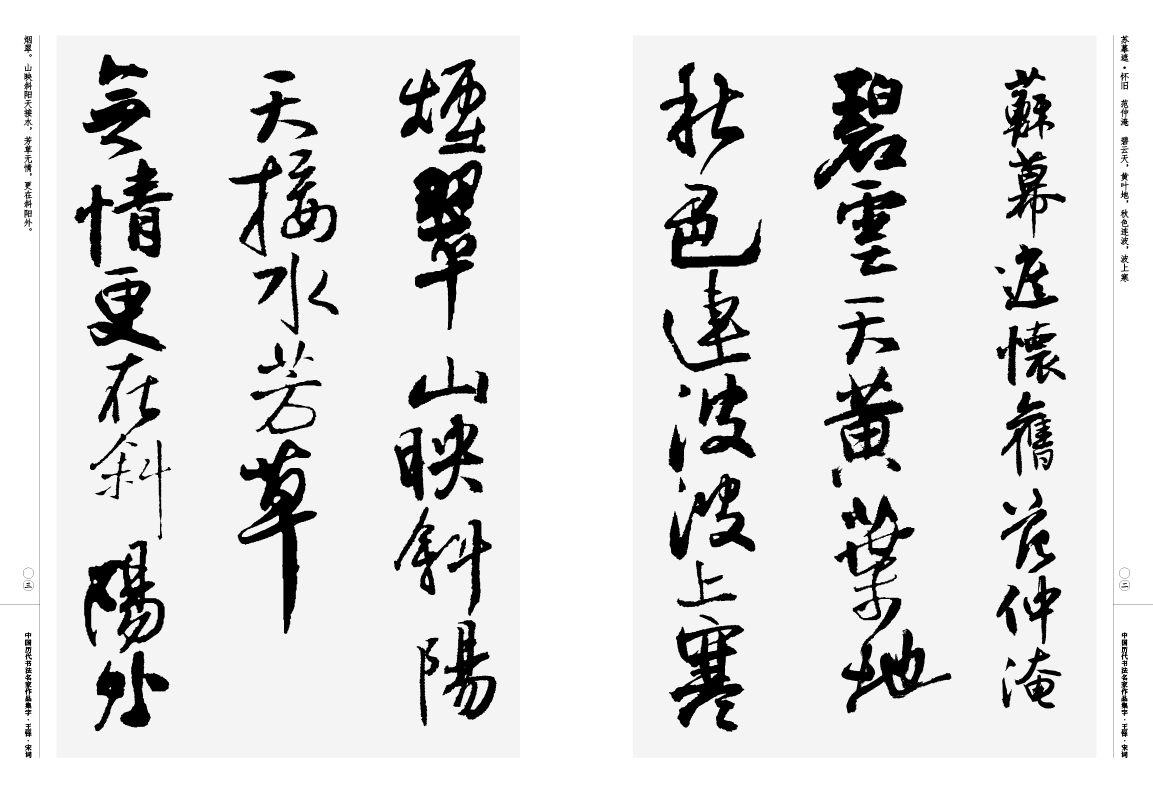 苏幕遮·怀旧 范仲淹 碧云天，黄叶地，秋色连波，波上寒
〇二
中国历代书法名家作品集字·王铎·宋词
蘇幕遮懷舊范仲淹
碧雲天黄葉地
秋色連波波上寒
煙翠山映斜陽
天接水芳草
無情更在斜陽外
烟翠。山映斜阳天接水，芳草无情，更在斜阳外。
〇三
中国历代书法名家作品集字·王铎·宋词